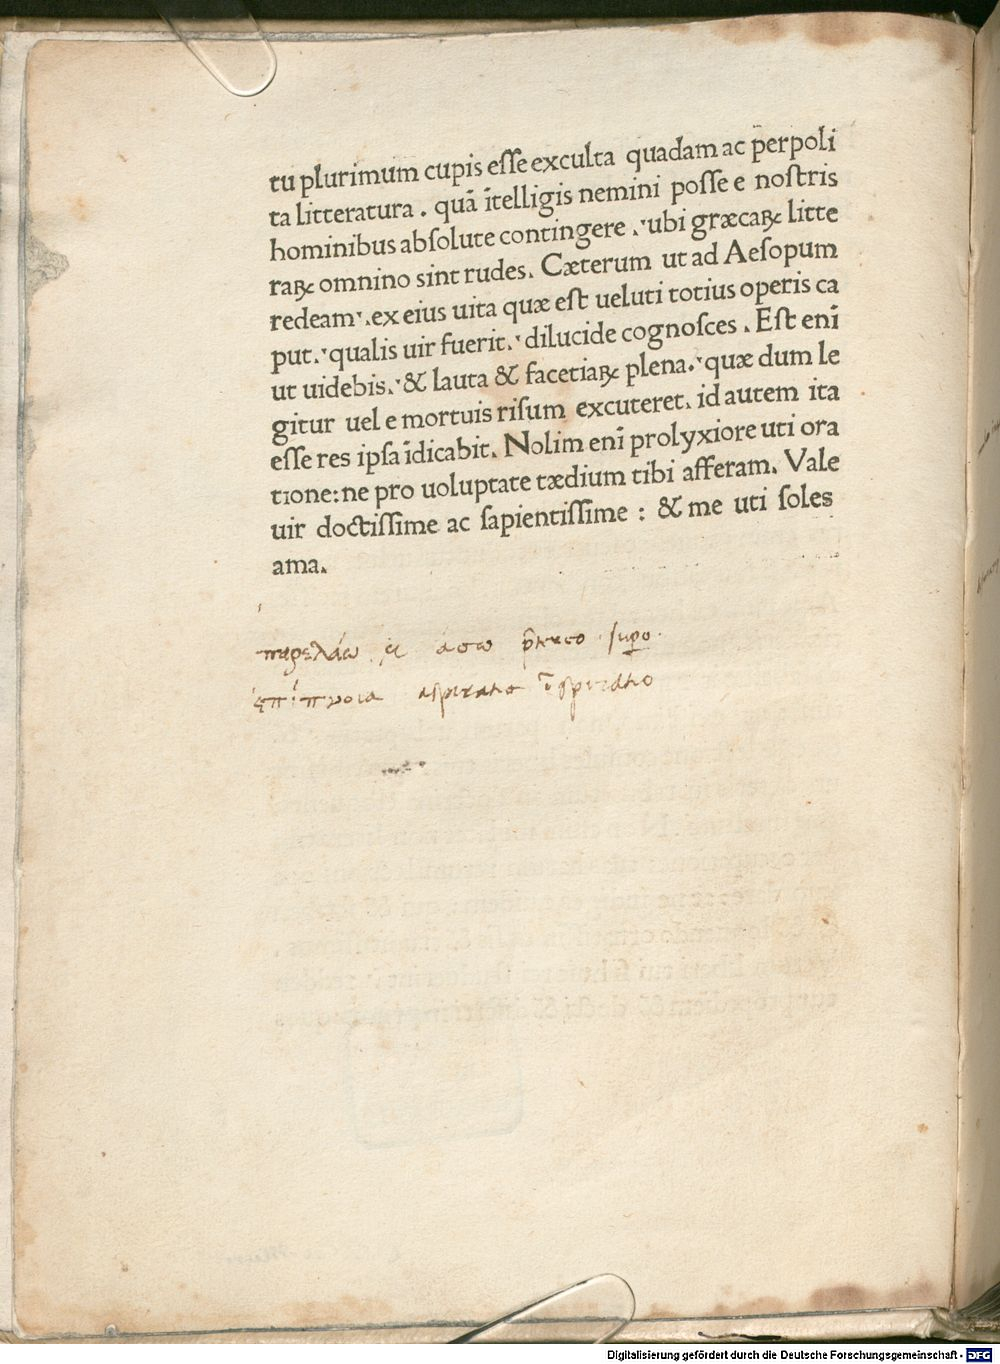 tu plurimum cupis eſſe exculta quadam ac perpoli
ta litteratura . quā ītelligis nemini poſſe e noſtris
hominibus abſolute contingere .ꞌ ubi græcaꝝ litte
raꝝ omnino sint rudes. Cæterum ut ad Aeſopum
redeamꞌ.ex eius uita quæ eſt ueluti totius operis ca
put.ꞌ qualis uir fuerit.ꞌ dilucide cognoſces . Eſt enī
ut uidebis.ꞌ & lauta & facetiaꝝ plena.ꞌ quæ dum le
gitur uel e mortuis riſum excuteret. id autem ita
eſſe res ipſa īdicabit. Nolim enī prolyxiore uti ora
tione: ne pro uoluptate tædium tibi afferam. Vale
uir doctiſſime ac ſapientiſſime : & me uti ſoles
ama.
παρελάω άσω ſupo.
ἐπίπνοια aſpiratio īſpiratio
Digitalisierung gefördert durch die Deutsche Forschungsgemeinschaft - DFG